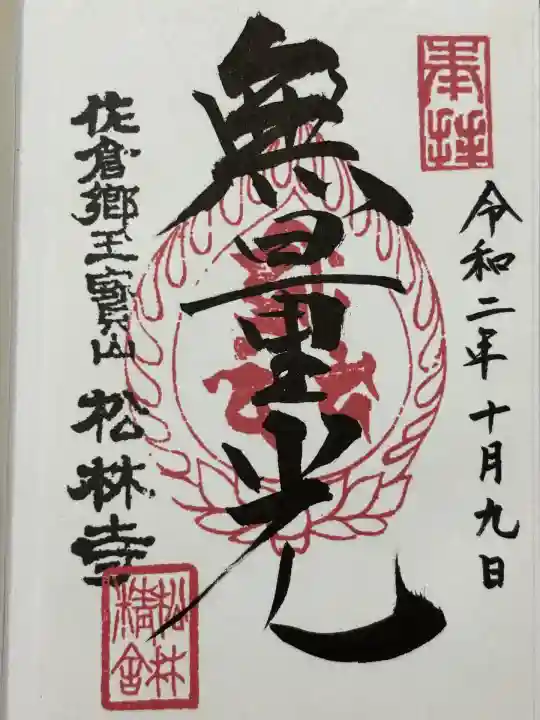 奉拝
令和二年十月九日
無量光
佐倉郷玉寶山 松林寺
松林
精舎